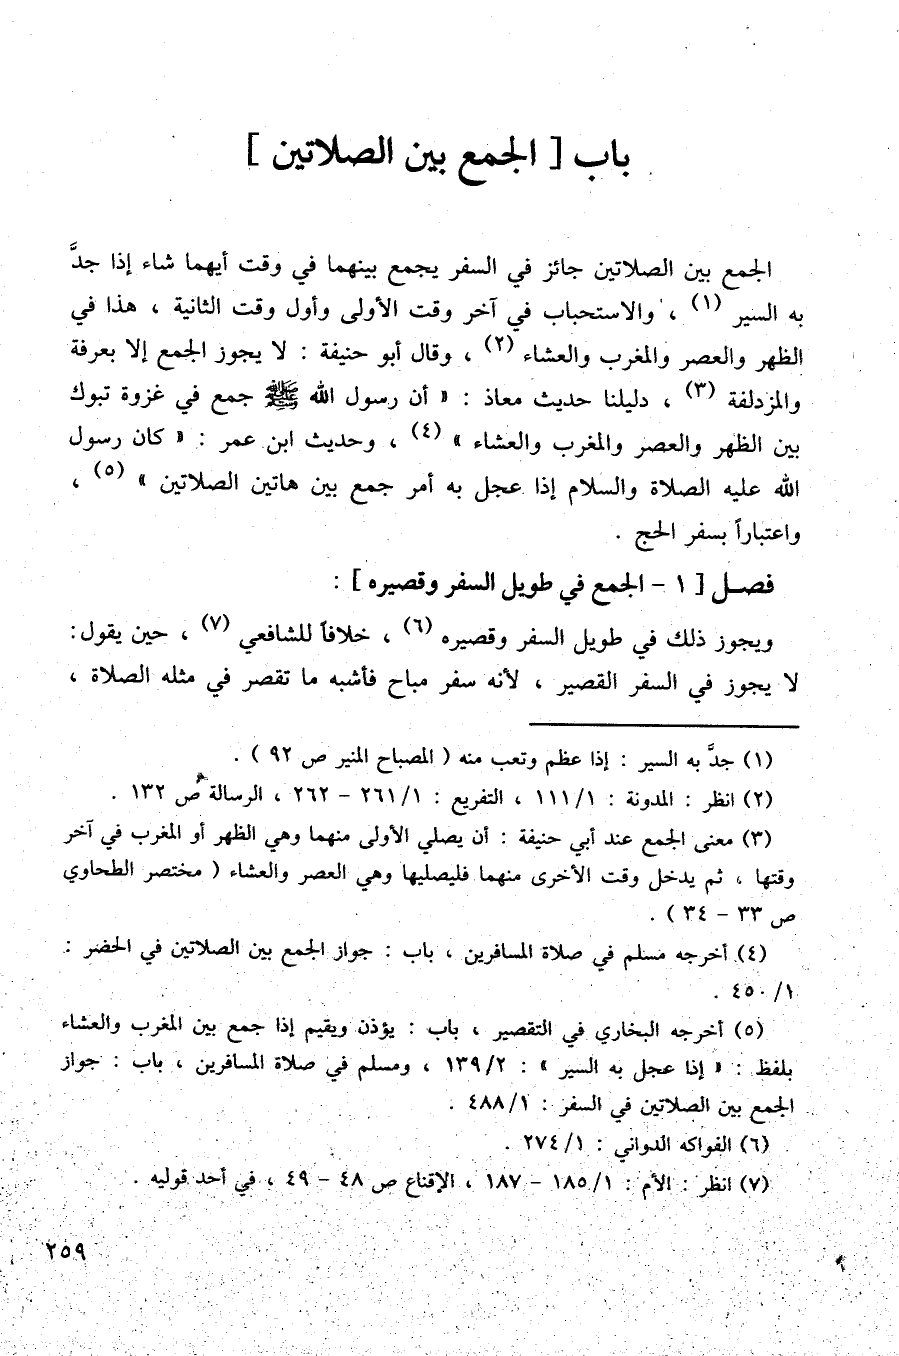 باب [ الجمع بين الصلاتين ]
الجمع بين الصلاتين جائز في السفر يجمع بينهما في وقت أيهما شاء إذا جدَّ
به السير (١) ، والاستحباب في آخر وقت الأولى وأول وقت الثانية ، هذا في
الظهر والعصر والمغرب والعشاء (٢) ، وقال أبو حنيفة : لا يجوز الجمع إلا بعرفة
والمزدلفة (٣) ، دليلنا حديث معاذ : « أن رسول الله ﷺ جمع في غزوة تبوك
بين الظهر والعصر والمغرب والعشاء » (٤) ، وحديث ابن عمر : « كان رسول
الله عليه الصلاة والسلام إذا عجل به أمر جمع بين هاتين الصلاتين » (٥) ،
واعتباراً بسفر الحج .
فصـل [ ١ - الجمع في طويل السفر وقصيره ] :
ويجوز ذلك في طويل السفر وقصيره (٦) ، خلافاً للشافعي (٧) ، حين يقول :
لا يجوز في السفر القصير ، لأنه سفر مباح فأشبه ما تقصر في مثله الصلاة ،
(١) جدَّ به السير : إذا عظم وتعب منه ( المصباح المنير ص ٩٢ ) .
(٢) انظر : المدونة : ١/١١١ ، التفريع : ١/٢٦١ - ٢٦٢ ، الرسالة ص ١٣٢ .
(٣) معنى الجمع عند أبي حنيفة : أن يصلي الأولى منهما وهي الظهر أو المغرب في آخر
وقتها ، ثم يدخل وقت الأخرى منهما فليصليها وهي العصر والعشاء ( مختصر الطحاوي
ص ٣٣ - ٣٤ ) .
(٤) أخرجه مسلم في صلاة المسافرين ، باب : جواز الجمع بين الصلاتين في الحضر :
١/٤٥٠ .
(٥) أخرجه البخاري في التقصير ، باب : يؤذن ويقيم إذا جمع بين المغرب والعشاء
بلفظ : « إذا عجل به السير » : ٢/١٣٩ ، ومسلم في صلاة المسافرين ، باب : جواز
الجمع بين الصلاتين في السفر : ١/٤٨٨ .
(٦) الفواكه الدواني : ١/٢٧٤ .
(٧) انظر : الأم : ١/١٨٥ - ١٨٧ ، الإقناع ص ٤٨ - ٤٩ ، في أحد قوليه .
٢٥٩